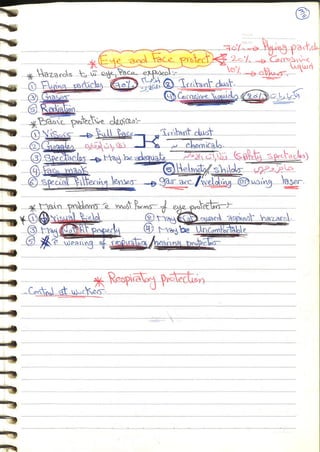 3/2
70% → Flying particles
* Eye and Face protect * 20% → Corrosive liquid
10% → others
* Hazards to w eye, face exposed:-
① Flying particles 70% ② Irritant dust.
③ Laser ④ Corrosive liquids 20%
⑤ Radiation
* Basic protective devices:-
① Visors → Full Face → Irritant dust
② Goggles ~ chemicals.
③ Spectacles → May be adequate (Safety spectacles)
④ Face mask ⑤ Helmets/shilds
⑥ special filtering lenses → gas arc/welding or using laser
* Main problems e most forms of eye protectors:-
① ↓ Visual field ② May not guard against hazard.
③ May not fit properly ④ May be Uncomfortable
⑤ e wearing of respiratory/hearing protector
* Respiratory protection
Control at work